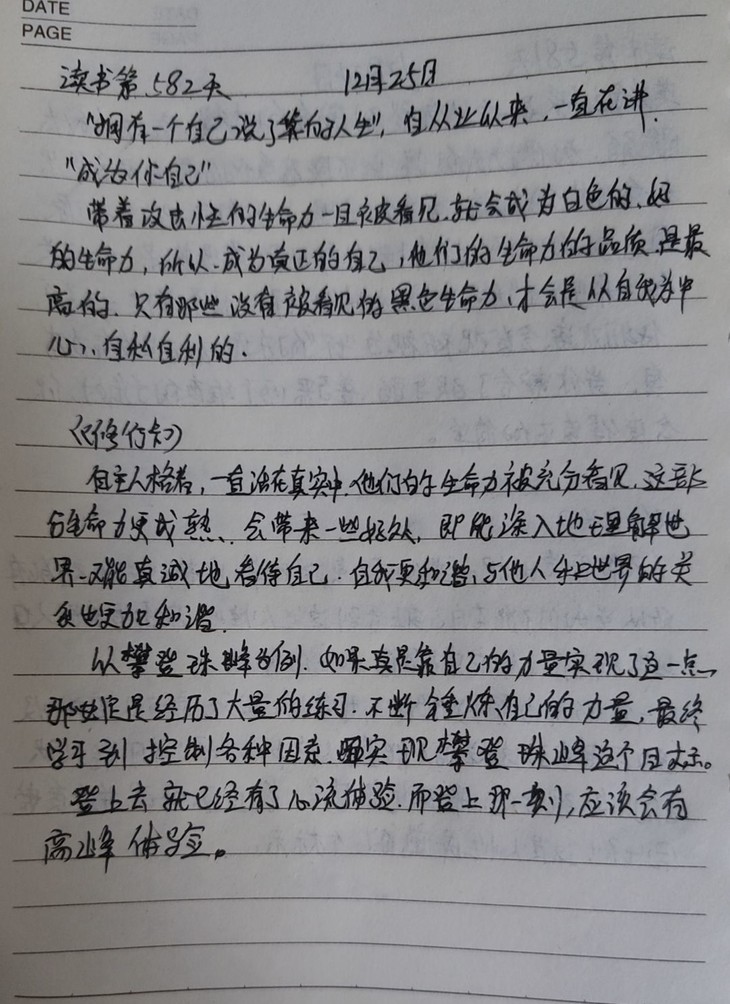 DATE
PAGE
读书第582天 12月25日
"拥有一个自己说了算的人生", 自从业以来, 一直在讲.
"成为你自己"
带着攻击性的生命力一旦被看见, 就会成为白色的、好
的生命力, 所以, 成为真正的自己, 他们的生命力的品质是最
高的. 只有那些没有被看见的黑色生命力, 才会是以自我为中
心、自私自利的.
自主人格者, 一直活在真实中. 他们的生命力被充分看见. 这部
分生命力更成熟、会带来一些好处, 即能深入地理解世
界. 又能真诚地看待自己. 自我更和谐, 与他人和世界的关
系也更加和谐.
以攀登珠峰为例. 如果真是靠自己的力量实现了这一点.
那一定是经历了大量的练习. 不断锤炼自己的力量, 最终
学习到控制各种因素, 实现攀登珠峰这个目标。
登上去就已经有了心流体验. 而登上那一刻, 应该会有
高峰体验。